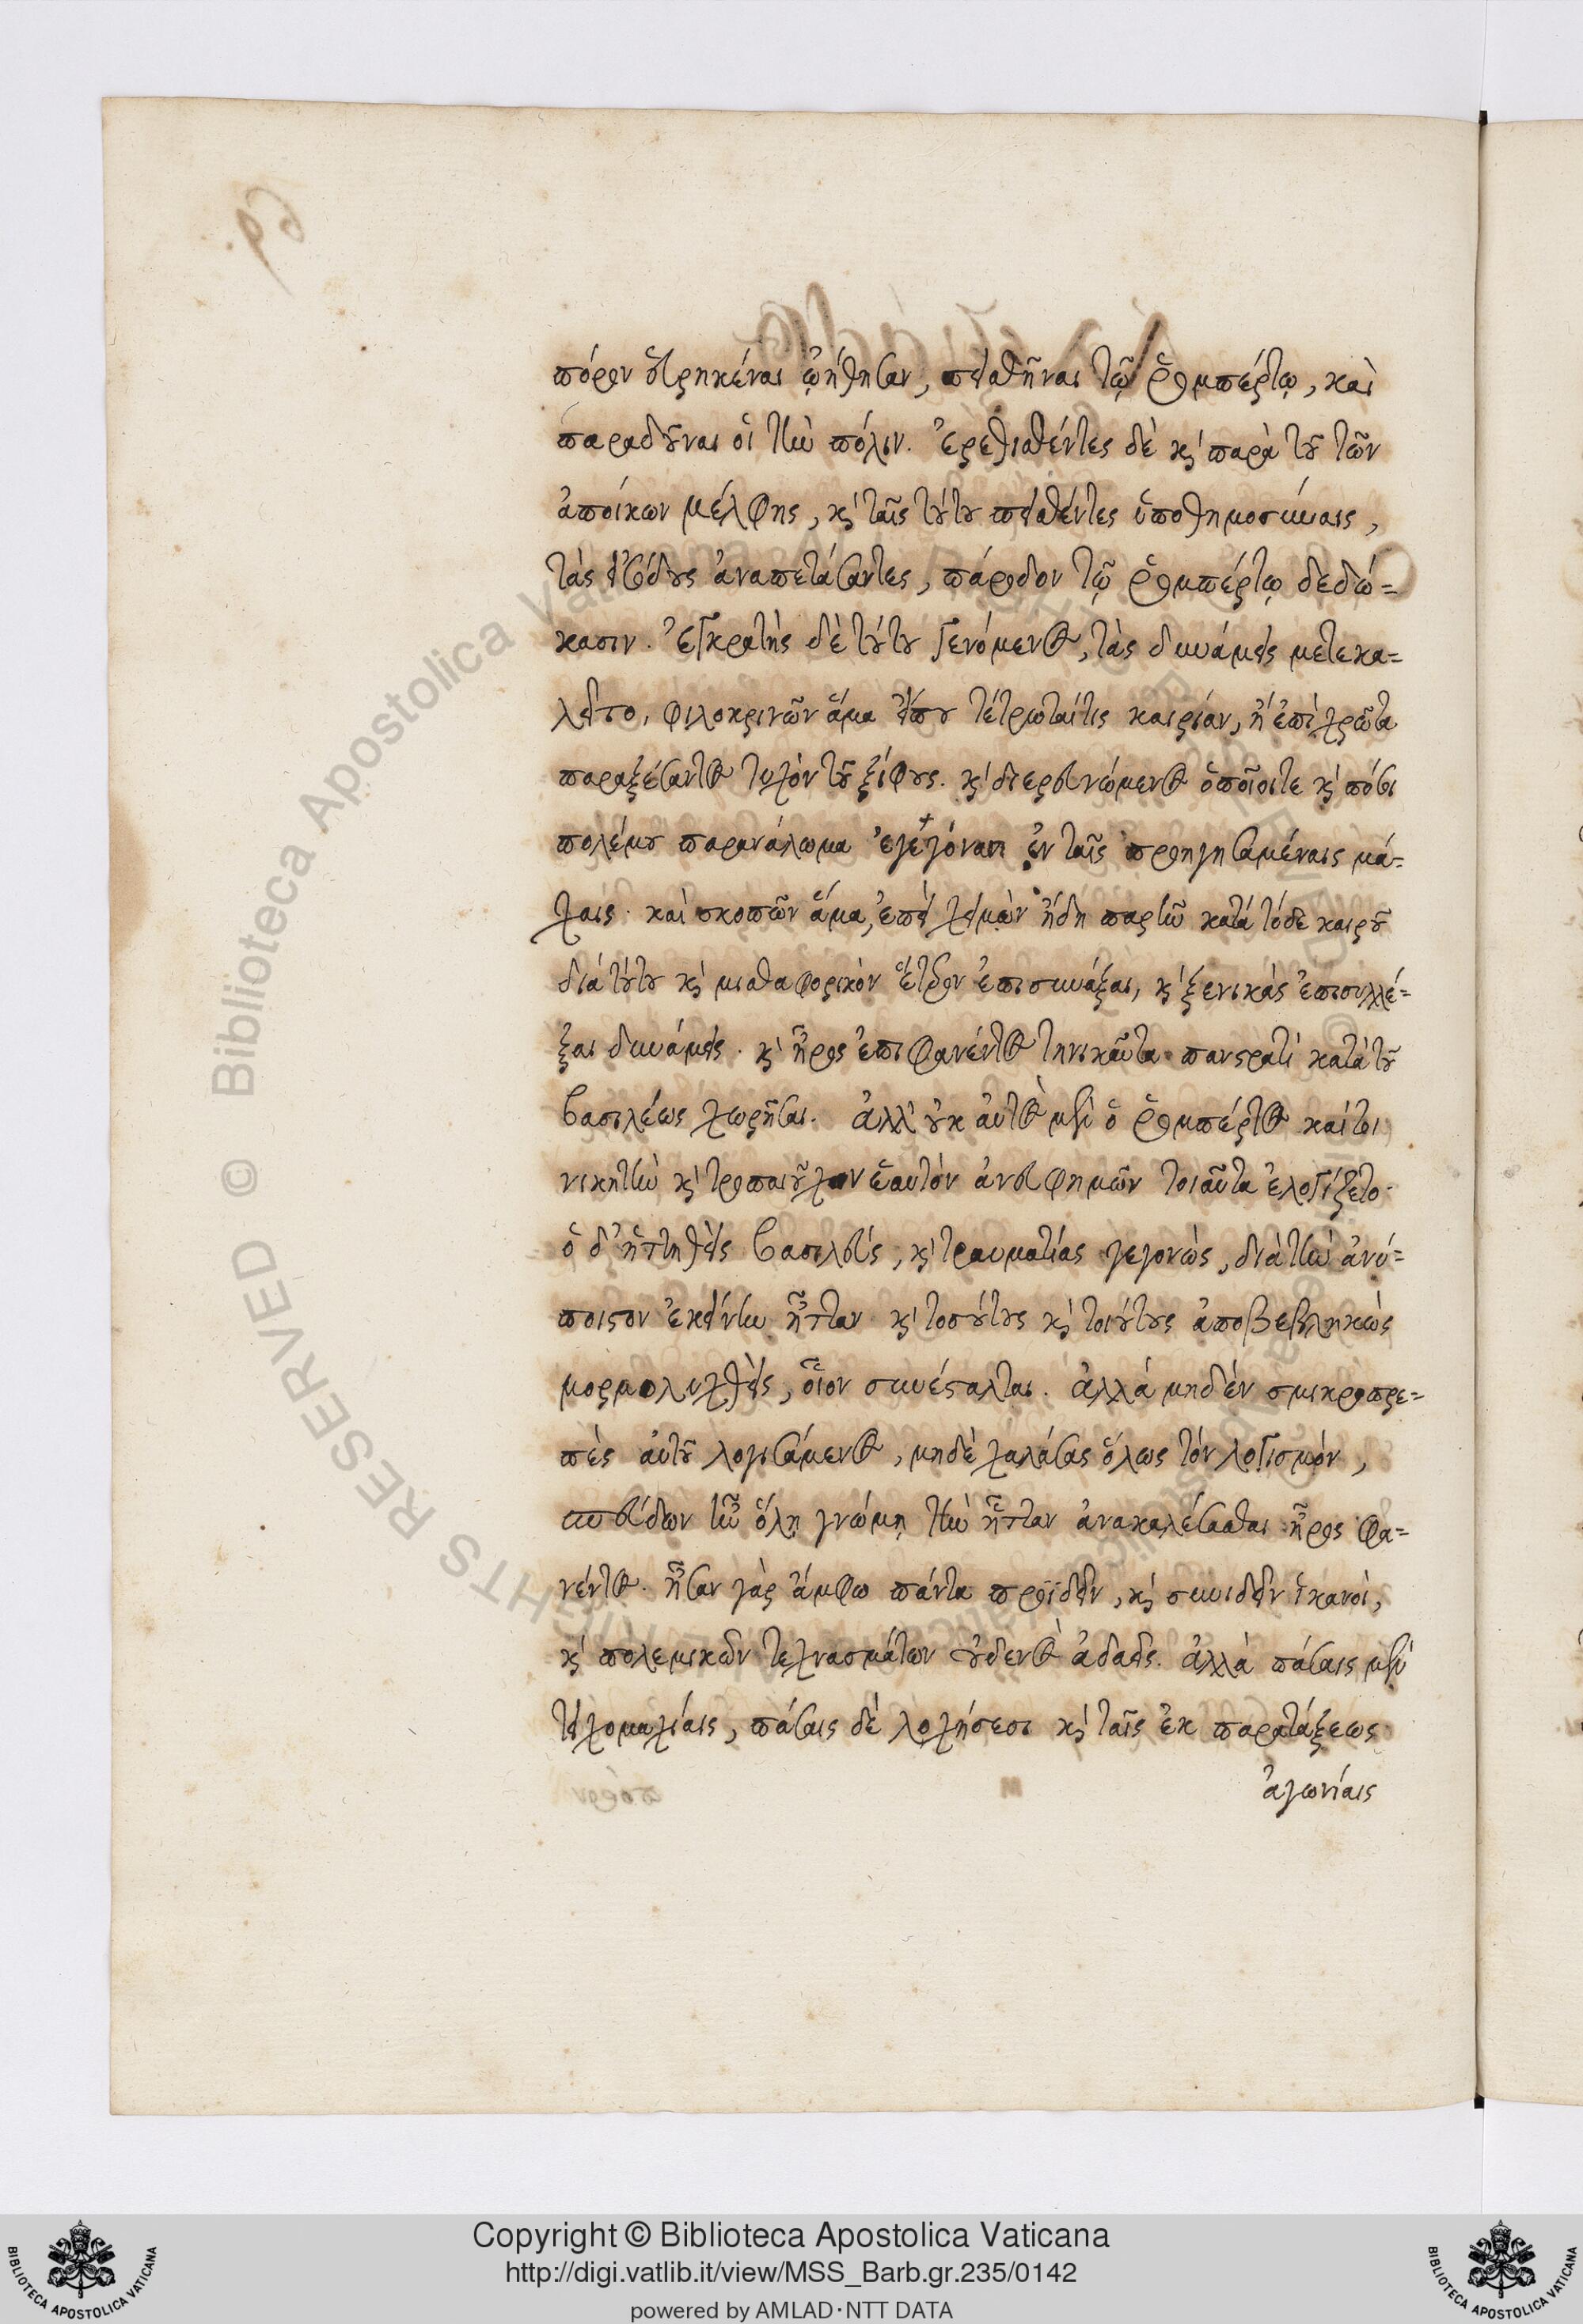 πόρον εὑρηκέναι ᾠήθησαν, πεισθῆναι τῷ ῥομπέρτῳ, καὶ
παραδοῦναι οἱ τὴν πόλιν. ἐρεθισθέντες δὲ κ παρὰ τοῦ τῶν
ἀποίκων μέλφης, κ ταῖς τούτου πεισθέντες ὑποθημοσύναις,
τὰς εἰσόδους ἀναπετάσαντες, πάροδον τῷ ῥομπέρτῳ δεδώ=
κασιν. ἐγκρατὴς δὲ τούτου γενόμενος, τὰς δυνάμεις μετεκα=
λεῖτο, φιλοκρινῶν ἅμα εἴπου τέτρωταίτις καιρίαν, ἢ ἐπὶ χρῶτα
παραξέσαντος τυχὸν τοῦ ξίφους. κ διερευνώμενος ὁποῖοιτε κ πόσοι
πολέμου παρανάλωμα ἐγεγόναπ ἐν ταῖς προηγησαμέναις μά=
χαις. καὶ σκοπῶν ἅμα, ἐπεὶ χειμὼν ἤδη παρῆν κατά τόδε καιροῦ
διά τούτου κ μισθοφορικὸν ἕτερον ἐπισυνάξαι, κ ξενικὰς ἐπισυλλέ=
ξαι δυνάμεις. κ ἦρος ἐπιφανέντος τηνικαῦτα πανστρατὶ κατὰ τοῦ
βασιλέως χωρῆσαι. ἀλλ' οὐκ αὐτὸς μὲν ὁ ῥομπέρτος καίτοι
νικητὴν κ τροπαιοῦχον ἑαυτόν ἀνευφημῶν τοιαῦτα ἐλογίζετο.
ὁ δ' ἡττηθεὶς βασιλεύς, κ τραυματίας γεγονὼς, διὰ τὴν ἀνύ=
ποιστον ἐκείνην ἧτταν κ τοσούτους κ τοιούτους ἀποβεβληκὼς
μορμολυχθεὶς, οἷον συνέσταλται. ἀλλά μηδέν σμικροπρε=
πὲς αὐτοῦ λογισάμενος, μηδὲ χαλάσας ὅλως τόν λογισμόν,
ἔσπευδεν τῇ ὅλῃ γνώμῃ τὴν ἧτταν ἀνακαλέσασθαι ἦρος φα=
νέντος. ἦσαν γὰρ ἄμφω πάντα προϊδεῖν, κ συνιδεῖν ἱκανοὶ,
κ πολεμικῶν τεχνασμάτων οὐδενὸς ἀδαεῖς. ἀλλὰ πάσαις μὲν
τειχομαχίαις, πάσαις δὲ λοχήσεσι κ ταῖς ἐκ παρατάξεως
ἀγωνίαις
Copyright © Biblioteca Apostolica Vaticana
http://digi.vatlib.it/view/MSS_Barb.gr.235/0142
powered by AMLAD·NTT DATA